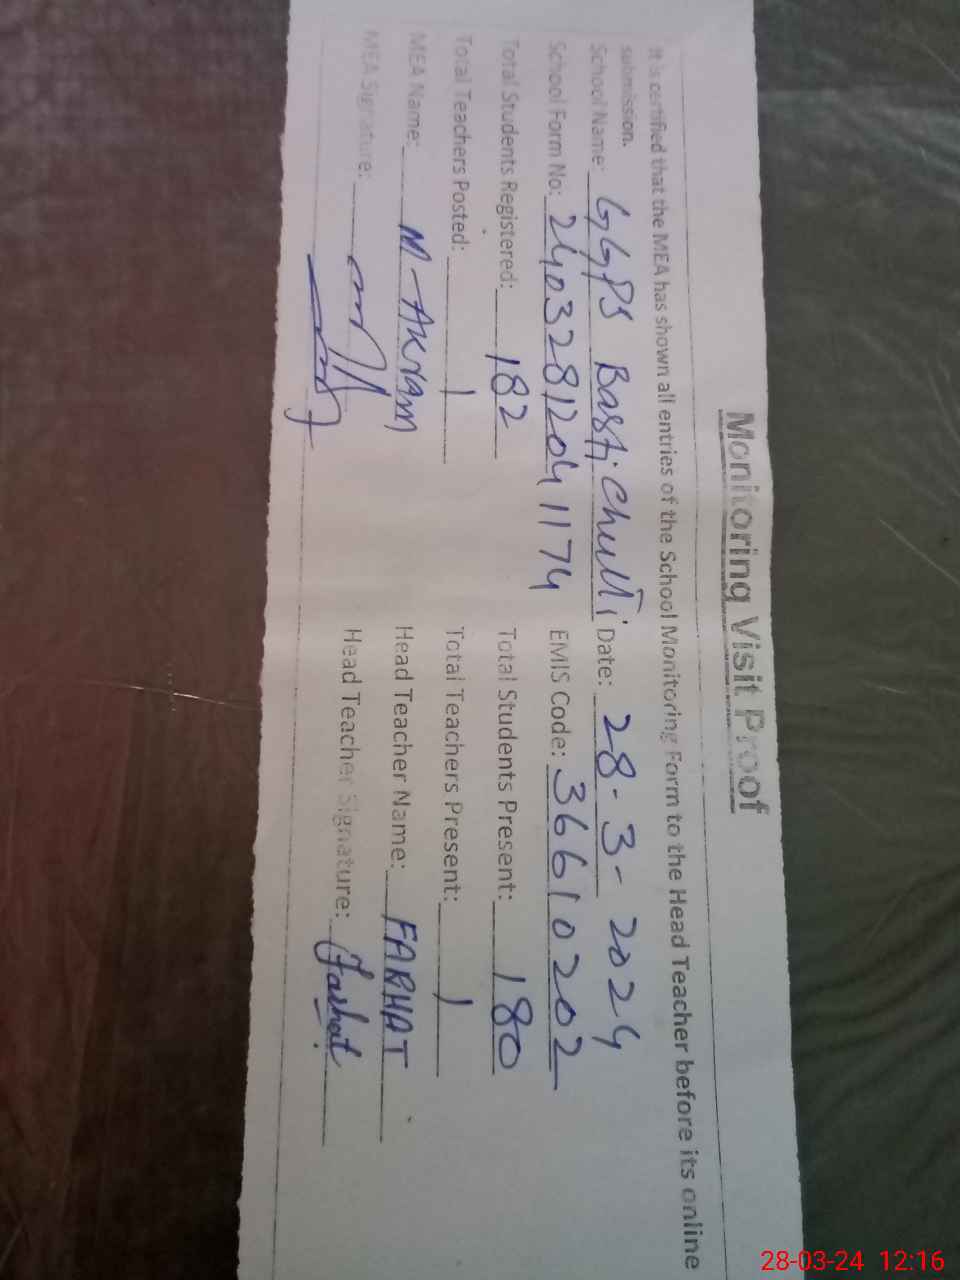 Monitoring Visit Proof
It is certified that the MEA has shown all entries of the School Monitoring Form to the Head Teacher before its online
submission.
School Name: GGPS Basti Chulti Date: 28-3-2024
School Form No: 24032812041174 EMIS Code: 36610202
Total Students Registered: 182 Total Students Present: 180
Total Teachers Posted: 1 Total Teachers Present: 1
MEA Name: M-AKram Head Teacher Name: FARHAT
MEA Signature: Head Teacher Signature: Farhat
28-03-24 12:16